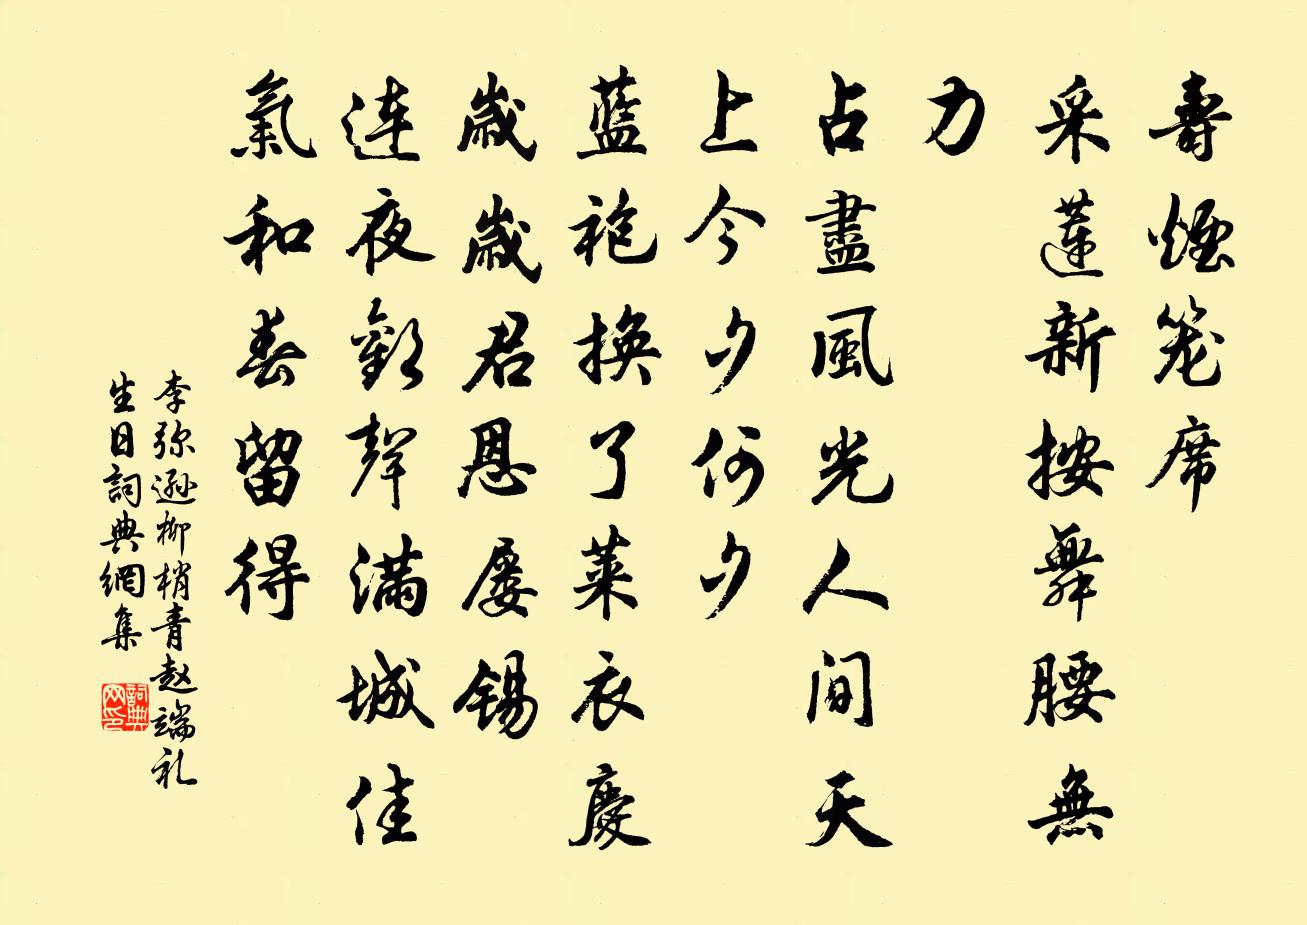 壽煙笼席
采蓮新按舞腰無
力
占盡風光人间天
上今夕何夕
藍袍換了萊衣慶
歲歲君恩屡锡
连夜歡聲滿城佳
氣和春留得
李弥遜柳梢青赵端礼
生日詞典網集
詞典
网印